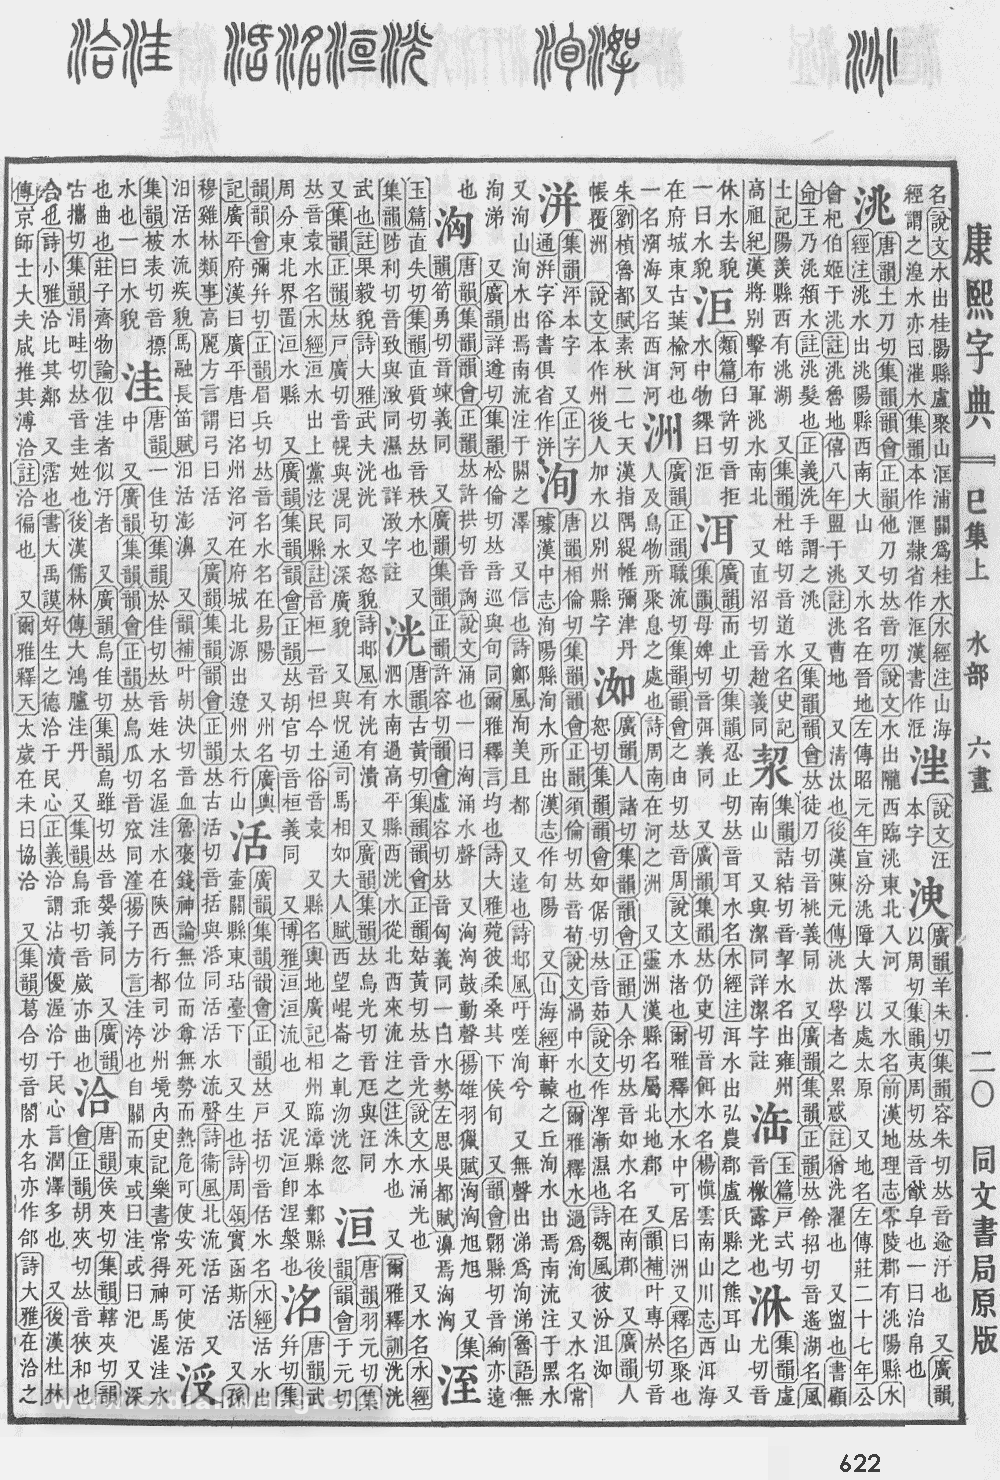 康熙字典 巳集上 水部 六畫 二〇 同文書局原版
名說文水出桂陽縣盧聚山洭浦關爲桂水水經注山海
經謂之湟水亦曰漼水集韻本作滙隷省作洭漢書作汪
說文汪
本字
廣韻羊朱切集韻容朱切𠀤音逾汙也 又廣韻
以周切集韻夷周切𠀤音猷阜也一曰治帛也
洮
唐韻土刀切集韻韻會正韻他刀切𠀤音叨說文水出隴西臨洮東北入河 又水名前漢地理志零陵郡有洮陽縣水
經注洮水出洮陽縣西南大山 又水名在晉地左傳昭元年宣汾洮障大澤以處太原 又地名左傳莊二十七年公
會杞伯姬于洮註洮魯地僖八年盟于洮註洮曹地 又淸汰也後漢陳元傳洮汰學者之累惑註猶洗濯也 又盥也書顧
命王乃洮頮水註洮髮也正義洗手謂之洮 又集韻韻會𠀤徒刀切音桃義同 又廣韻集韻正韻𠀤餘招切音遙湖名風
土記陽羨縣西有洮湖 又集韻杜皓切音道水名史記
高祖紀漢將別擊布軍洮水南北 又直沼切音趙義同
洯
集韻詰結切音挈水名出雍州
南山 又與潔同詳潔字註
玉篇戶式切
音檄露光也
集韻虛
尤切音
休水去貌
一曰水貌
洰
類篇臼許切音拒
水中物曰洰
洱
廣韻而止切集韻忍止切𠀤音耳水名水經注洱水出弘農郡盧氏縣之熊耳山 又
集韻母婢切音弭義同 又廣韻集韻𠀤仍吏切音餌水名楊慎雲南山川志西洱海
在府城東古葉楡河也
一名洱海又名西洱河
洲
廣韻正韻職流切集韻韻會之由切𠀤音周說文水渚也爾雅釋水水中可居曰洲又釋名聚也
人及鳥物所聚息之處也詩周南在河之洲 又靈洲漢縣名屬北地郡 又韻補叶專於切音
朱劉楨魯都賦素秋二七天漢指隅緹帷彌津丹
帳覆洲 說文本作州後人加水以別州縣字
洳
廣韻人諸切集韻韻會正韻人余切𠀤音如水名在南郡 又廣韻人
恕切集韻韻會如倨切𠀤音茹說文作漸濕也詩魏風彼汾沮洳
洴
集韻泙本字 又正字
通洴字俗書俱省作洴
洵
唐韻相倫切集韻韻會正韻須倫切𠀤音荀說文渦中水也爾雅釋水過爲洵 又水名常
璩漢中志洵陽縣洵水所出漢志作旬陽 又山海經軒轅之丘洵水出焉南流注于黑水
又洵山洵水出焉南流注于閼之澤 又信也詩鄭風洵美且都 又遠也詩邶風吁嗟洵兮 又無聲出涕爲洵涕魯語無
洵涕 又廣韻詳遵切集韻松倫切𠀤音巡與旬同爾雅釋言均也詩大雅菀彼柔桑其下侯旬 又韻會翾縣切音絢亦遠
也
洶
唐韻集韻韻會正韻𠀤許拱切音詾說文涌也一曰洶涌水聲 又洶洶鼓動聲揚雄羽獵賦洶洶旭旭 又集
韻筍勇切音竦義同 又廣韻集韻正韻許容切韻會虛容切𠀤音匈義同一曰水勢左思吳都賦濞焉洶洶
洷
玉篇直失切集韻直質切𠀤音秩水也 又
集韻陟利切音致與同濕也詳字註
洸
唐韻古黃切集韻韻會正韻姑黃切𠀤音光說文水涌光也 又水名水經
泗水南過高平縣西洸水從北西來流注之注洙水也 又爾雅釋訓洸洸
武也註果毅貌詩大雅武夫洸洸 又怒貌詩邶風有洸有潰 又廣韻集韻𠀤烏光切音尪與汪同
又集韻正韻𠀤戸廣切音幌與滉同水深廣貌 又與怳通司馬相如大人賦西望崐崙之軋沕洸忽
洹
唐韻羽元切集
韻韻會于元切
𠀤音袁水名水經洹水出上黨泫氏縣註音桓一音怛今土俗音袁 又縣名輿地廣記相州臨漳縣本鄴縣後
周分東北界置洹水縣 又廣韻集韻韻會正韻𠀤胡官切音桓義同 又博雅洹洹流也 又泥洹卽涅槃也
洺
唐韻武
幷切集
韻韻會彌幷切正韻眉兵切𠀤音名水名在易陽 又州名廣輿
記廣平府漢曰廣平唐曰洺州洺河在府城北源出遼州太行山
活
廣韻集韻韻會正韻𠀤戸括切音佸水名水經活水出
壷關縣東玷臺下 又生也詩周頌實函斯活 又孫
穆雞林類事高麗方言謂弓曰活 又廣韻集韻韻會正韻𠀤古活切音括與湉同活活水流聲詩衞風北流活活 又
汨活水流疾貌馬融長笛賦汨活澎濞 又韻補叶胡決切音血魯褒錢神論無位而尊無勢而熱危可使安死可使活
集韻被表切音摽
水也一曰水貌
洼
唐韻一佳切集韻於佳切𠀤音娃水名渥洼水在陝西行都司沙州境內史記樂書常得神馬渥洼水
中 又廣韻集韻韻會正韻𠀤烏瓜切音窊同漥揚子方言洼洿也自關而東或曰洼或曰氾 又深
也曲也莊子齊物論似洼者似汙者 又廣韻烏佳切集韻烏雖切𠀤音嫢義同 又廣韻
古攜切集韻涓畦切𠀤音圭姓也後漢儒林傳大鴻臚洼丹 又集韻烏乖切音崴亦曲也
洽
唐韻侯夾切集韻轄夾切韻
會正韻胡夾切𠀤音狹和也
合也詩小雅洽比其鄰 又霑也書大禹謨好生之德洽于民心正義洽謂沾漬優渥洽于民心言潤澤多也 又後漢杜林
傳京師士大夫咸推其溥洽註洽徧也 又爾雅釋天太歲在未曰協洽 又集韻葛合切音閤水名亦作郃詩大雅在洽之
622